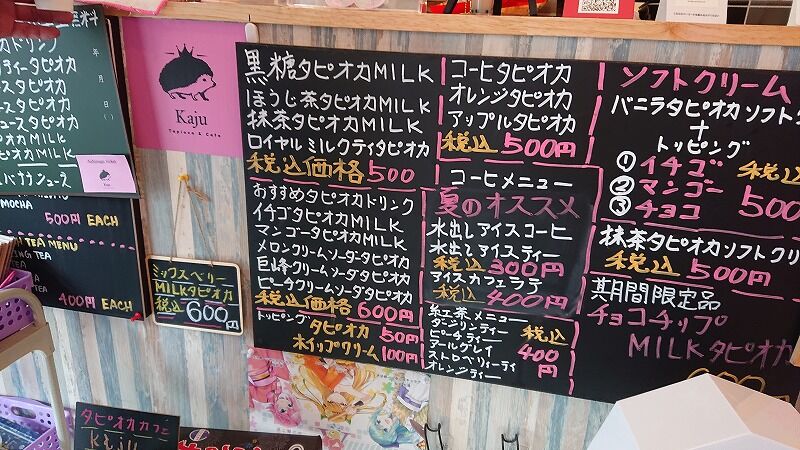 無料
年
月
日
カドリンク
ティータピオカ
スタピオカ
ースタピオカ
ースタピオカ
ュースタピオカ
オカMILK
ピオカMILK
バナナジュース
Kaju
Kaju
Tapioca & Cafe
MOCHA
500円 EACH
TEA MENU
TEA
TEA
400円 EACH
ミックスベリー
MILKタピオカ
税込
600円
タピオカカフェ
Kaju
黒糖タピオカMILK
ほうじ茶タピオカMILK
抹茶タピオカMILK
ロイヤルミルクティタピオカ
税込価格500
おすすめタピオカドリンク
イチゴタピオカMILK
マンゴータピオカMILK
メロンクリームソーダータピオカ
巨峰クリームソーダタピオカ
ピーチクリームソーダタピオカ
税込価格600円
トッピング
タピオカ 50円
ホイップクリーム 100円
コーヒタピオカ
オレンジタピオカ
アップルタピオカ
税込 500円
コーヒメニュー
夏のオススメ
水出しアイスコーヒ
水出しアイスティー
税込 300円
アイスカフェラテ
税込 400円
紅茶メニュー
ダージリンティー
ピーチティー
アールグレイ
ストロベリーティ
オレンジティー
税込
400
円
ソフトクリーム
バニラタピオカソフトク
+
トッピング
① イチゴ
② マンゴー
③ チョコ
税込
500
抹茶タピオカソフトクリ
税込 500円
期間限定品
チョコチップ
MILKタピオカ